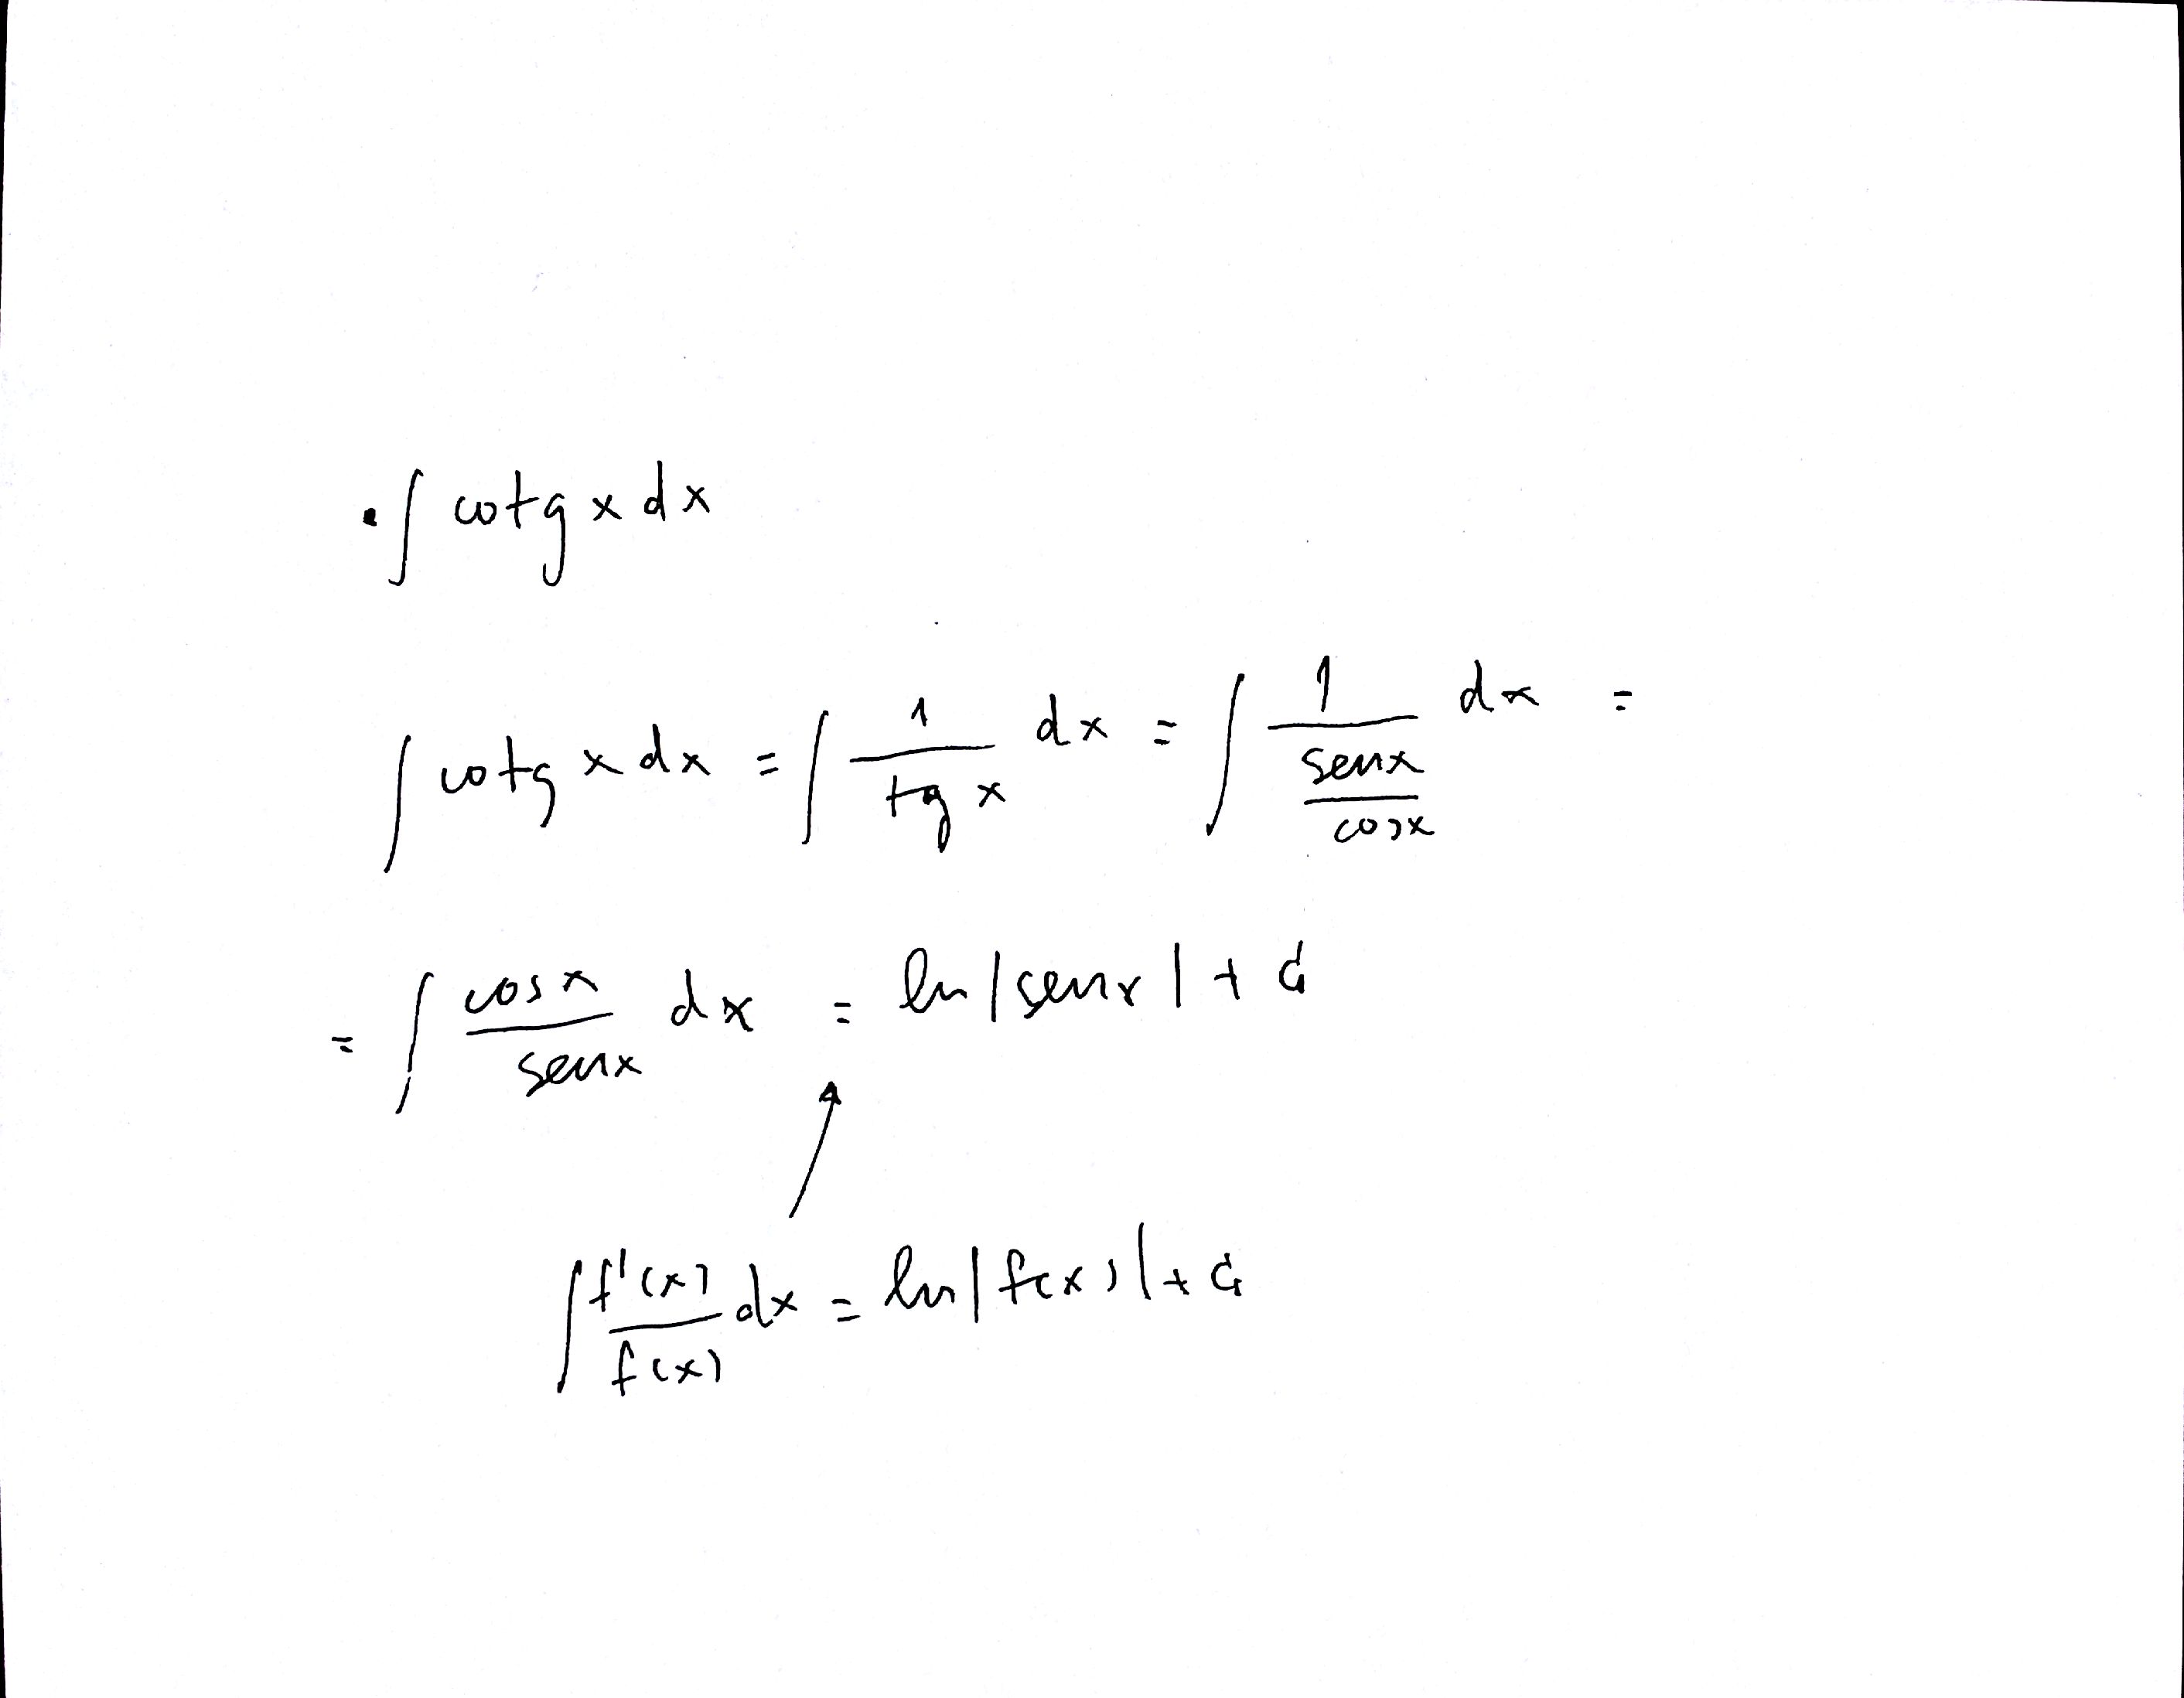 • ∫ cotg x dx
∫ cotg x dx = ∫ 1/(tg x) dx = ∫ 1/(sen x/cos x) dx =
= ∫ cos x/sen x dx = ln |sen x| + C
∫ f'(x)/f(x) dx = ln |f(x)| + C